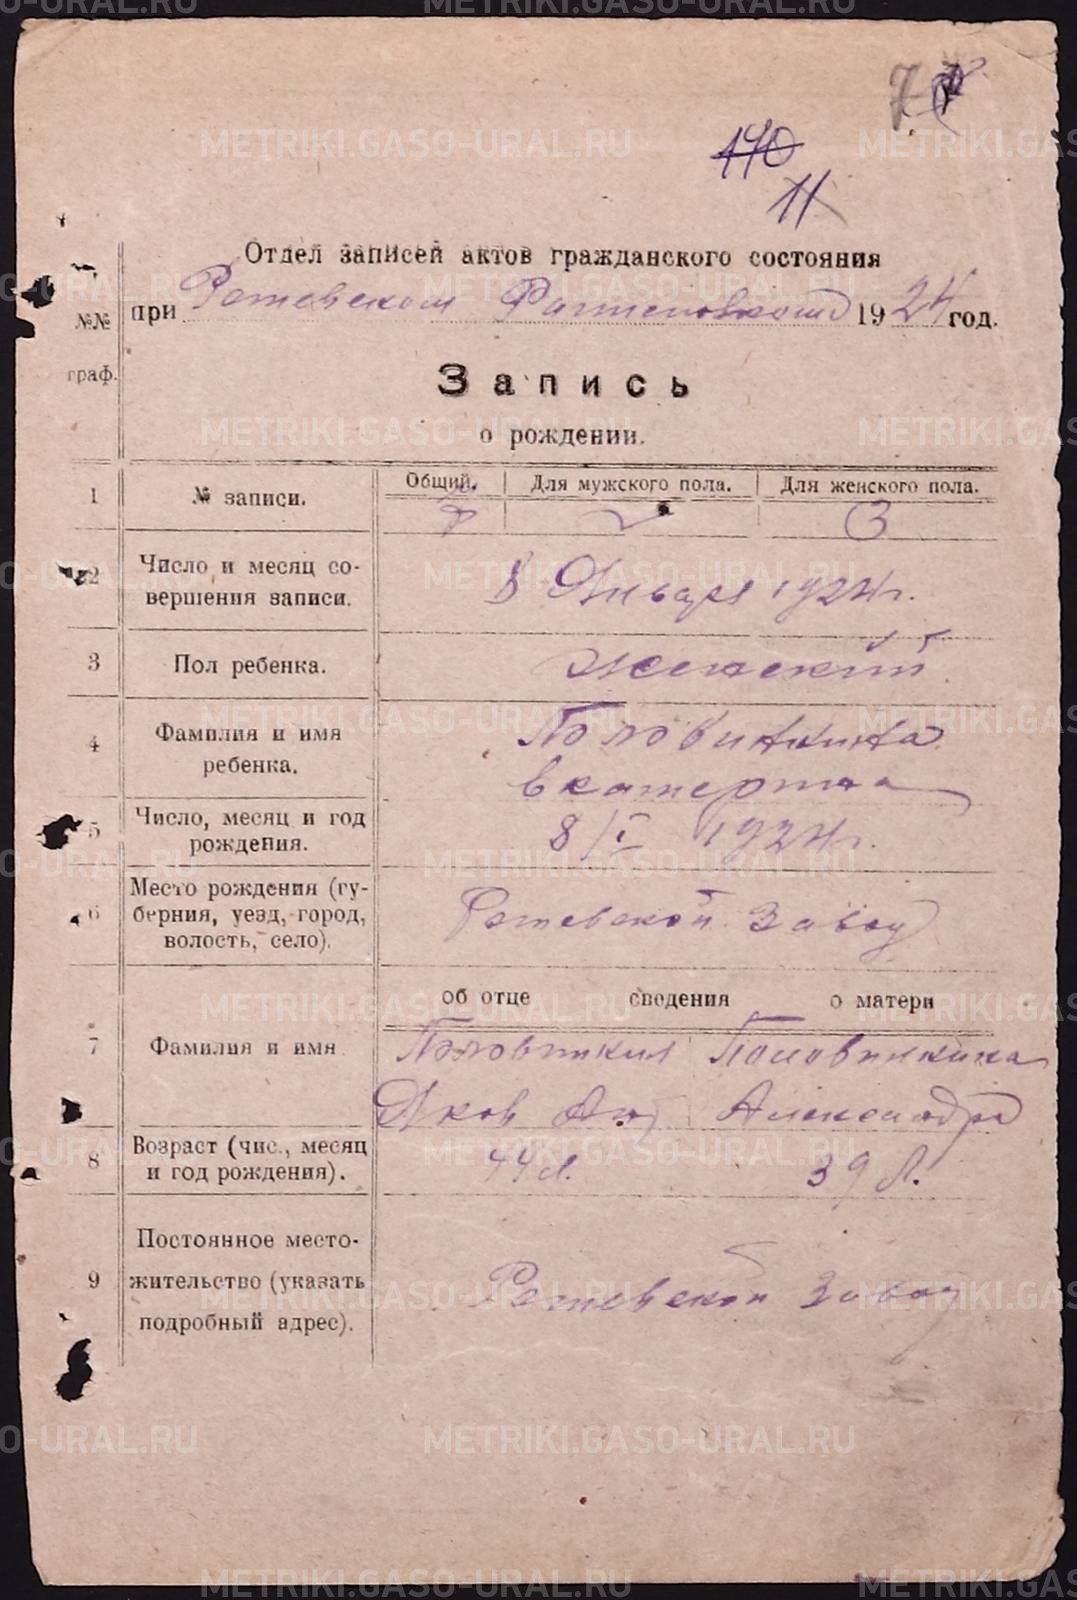 METRIKI.GASO-URAL.RU
7
170
11
Отдел записей актов гражданского состояния
при Режевском 1924 год.
№№ граф.
Запись
о рождении.
1 № записи. Общий. Для мужского пола. Для женского пола.
7 3
2 Число и месяц совершения записи. 8 Января 1924 г.
3 Пол ребенка. Женский
4 Фамилия и имя ребенка. Половинкина
Екатерина
5 Число, месяц и год рождения. 8/I 1924 г.
6 Место рождения (губерния, уезд, город, волость, село). Режевской Завод
об отце сведения о матери
7 Фамилия и имя Половинкин Половинкина
Яков Ант Александра
8 Возраст (чис., месяц и год рождения). 44 л. 39 л.
9 Постоянное местожительство (указать подробный адрес). Режевской Завод